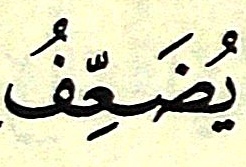 يُضَعِّفُ